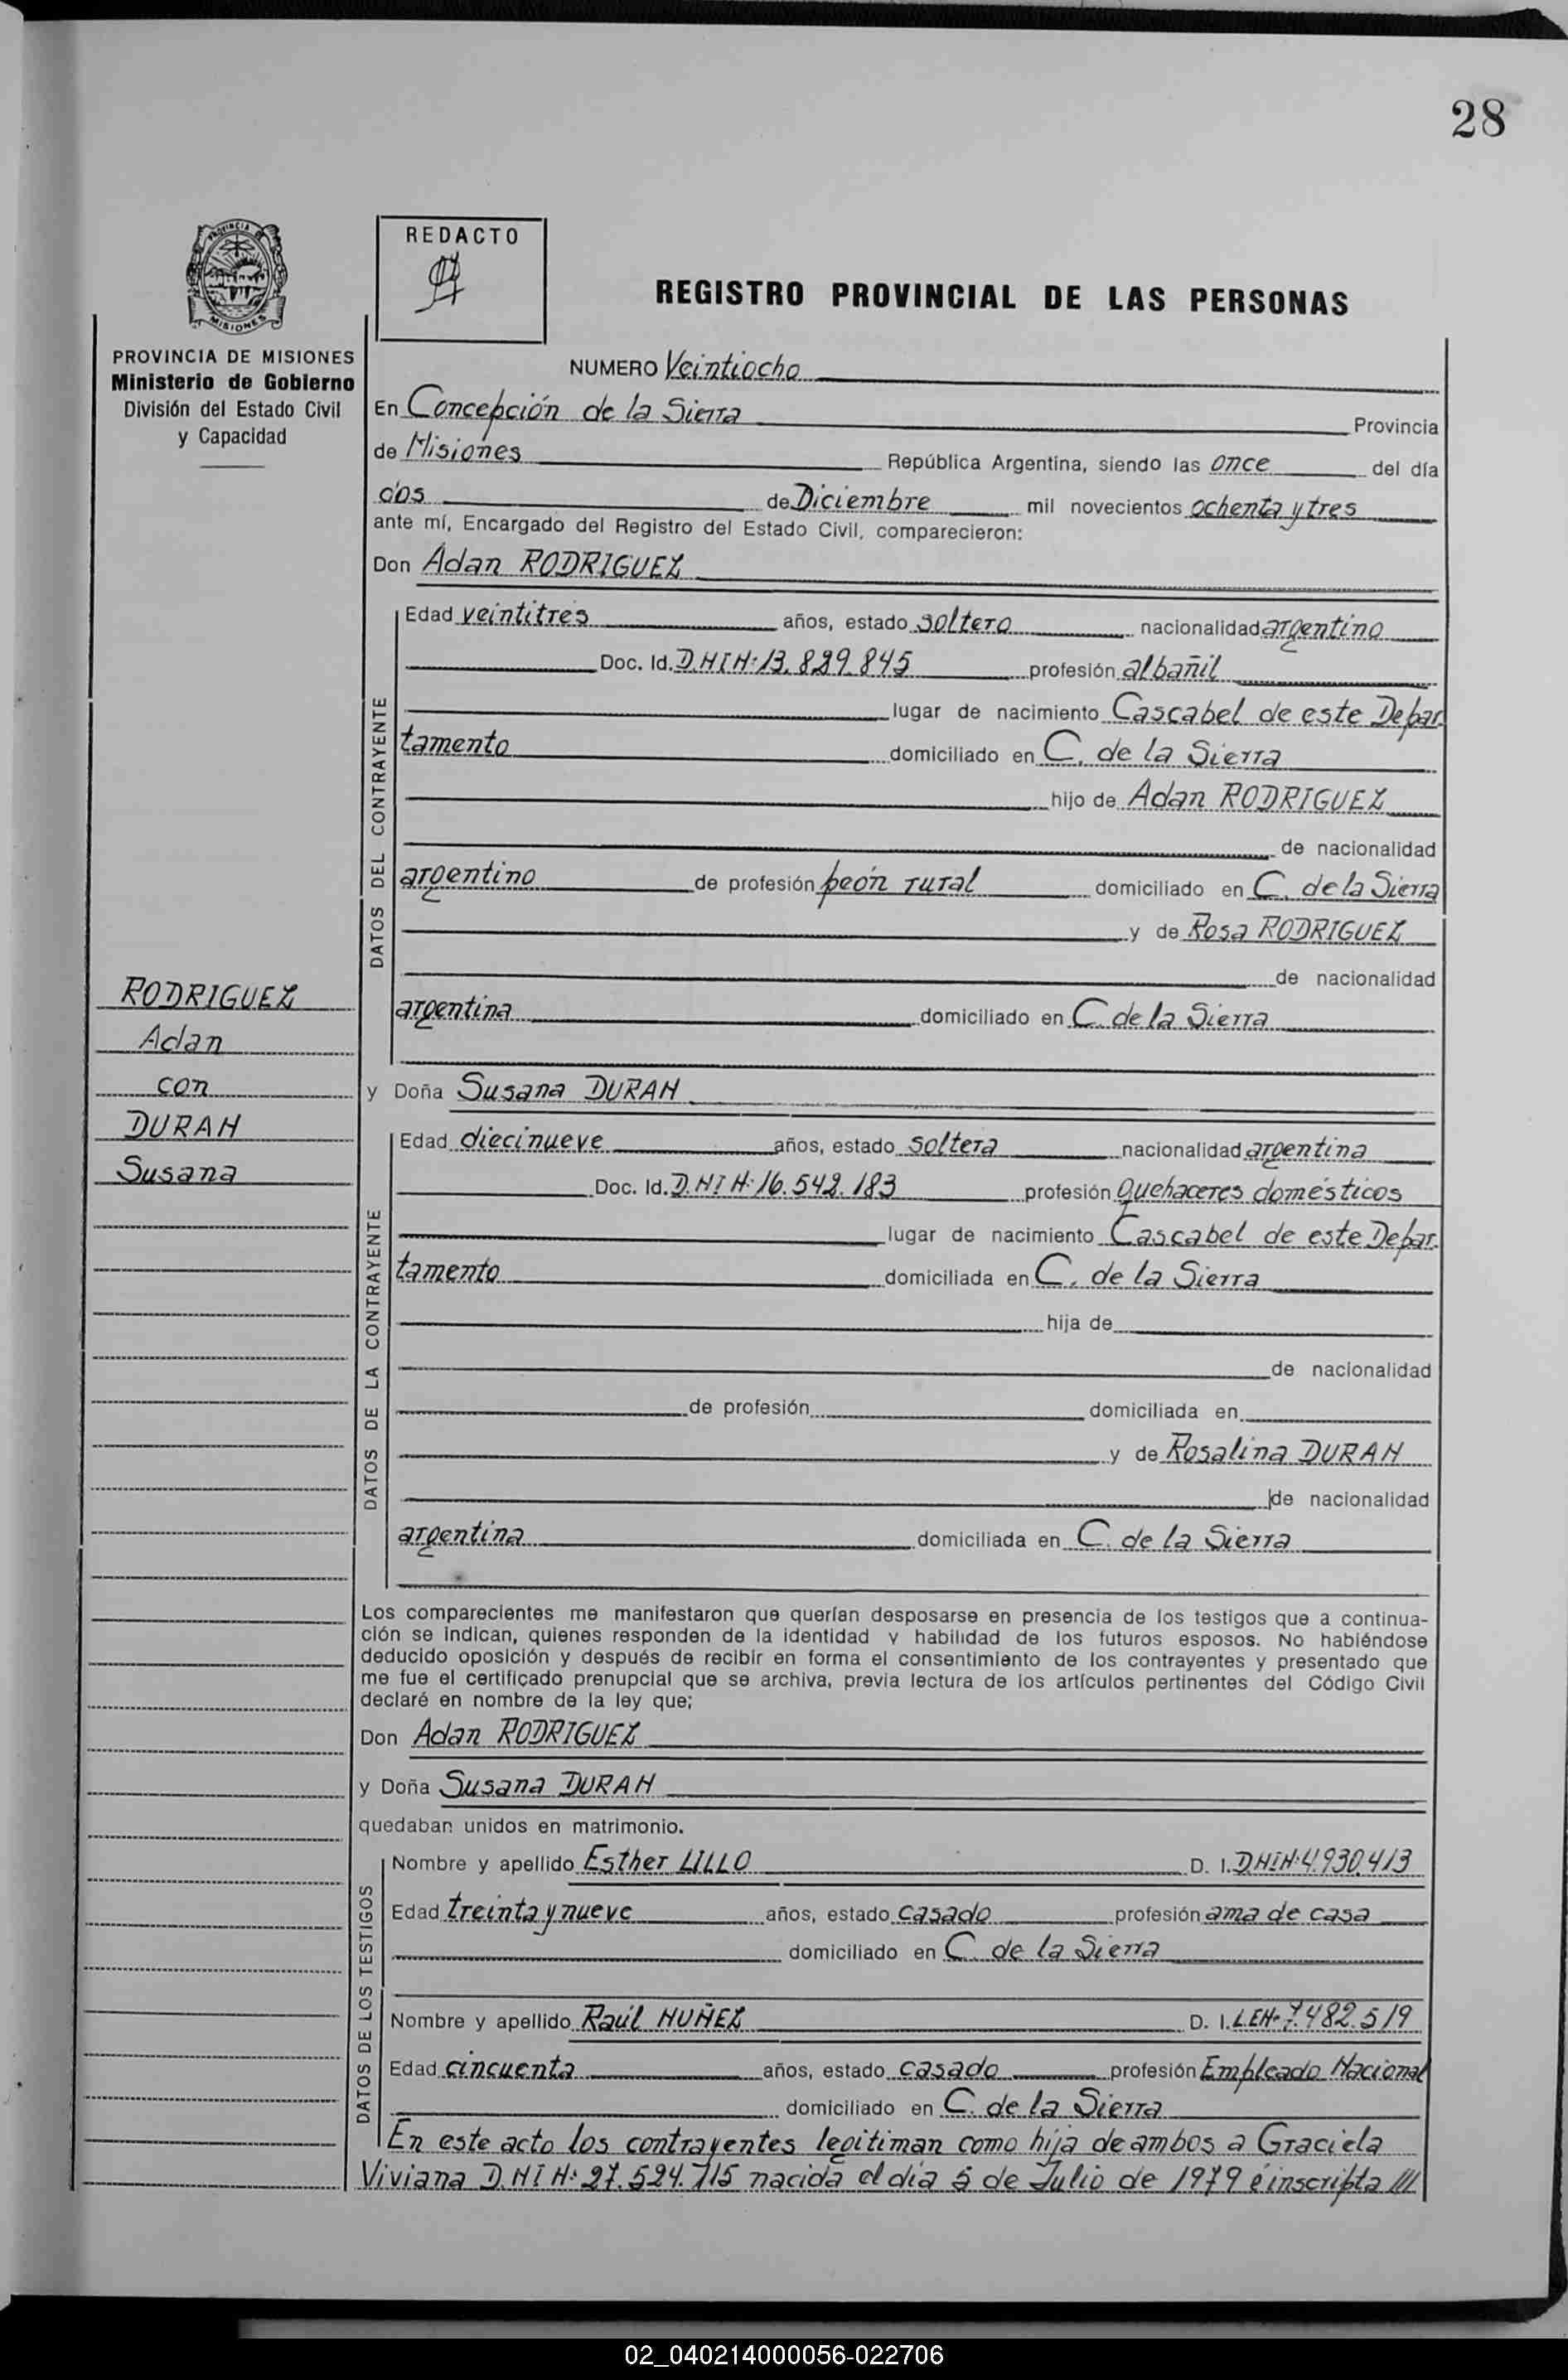 28
PROVINCIA DE
MISIONES
PROVINCIA DE MISIONES
Ministerio de Gobierno
División del Estado Civil
y Capacidad
REDACTO
REGISTRO PROVINCIAL DE LAS PERSONAS
NUMERO Veintiocho
En Concepción de la Sierra Provincia
de Misiones República Argentina, siendo las once del día
dos de Diciembre mil novecientos ochenta y tres
ante mí, Encargado del Registro del Estado Civil, comparecieron:
Don Adan RODRIGUEZ
DATOS DEL CONTRAYENTE
Edad veintitres años, estado soltero nacionalidad argentino
Doc. Id. D.N I N: 13.829.845 profesión albañil
lugar de nacimiento Cascabel de este Depar
tamento domiciliado en C. de la Sierra
hijo de Adan RODRIGUEZ
de nacionalidad
argentino de profesión peón rural domiciliado en C. de la Sierra
y de Rosa RODRIGUEZ
de nacionalidad
argentina domiciliado en C. de la Sierra
RODRIGUEZ
Adan
con
DURAN
Susana
y Doña Susana DURAN
DATOS DE LA CONTRAYENTE
Edad diecinueve años, estado soltera nacionalidad argentina
Doc. Id. D.N I N: 16.542.183 profesión quehaceres domésticos
lugar de nacimiento Cascabel de este Depar.
tamento domiciliada en C. de la Sierra
hija de
de nacionalidad
de profesión domiciliada en
y de Rosalina DURAN
de nacionalidad
argentina domiciliada en C. de la Sierra
Los comparecientes me manifestaron que querían desposarse en presencia de los testigos que a continua-
ción se indican, quienes responden de la identidad y habilidad de los futuros esposos. No habiéndose
deducido oposición y después de recibir en forma el consentimiento de los contrayentes y presentado que
me fue el certificado prenupcial que se archiva, previa lectura de los artículos pertinentes del Código Civil
declaré en nombre de la ley que;
Don Adan RODRIGUEZ
y Doña Susana DURAN
quedaban unidos en matrimonio.
DATOS DE LOS TESTIGOS
Nombre y apellido Esther LILLO D. I. D.N I N: 4.930.413
Edad treinta y nueve años, estado casado profesión ama de casa
domiciliado en C. de la Sierra
Nombre y apellido Raúl NUÑEZ D. I. L.E N: 7.482.519
Edad cincuenta años, estado casado profesión Empleado Nacional
domiciliado en C. de la Sierra
En este acto los contrayentes legitiman como hija de ambos a Graciela
Viviana D.N I N: 27.524.715 nacida el día 5 de Julio de 1979 é inscripta ///
02_040214000056-022706